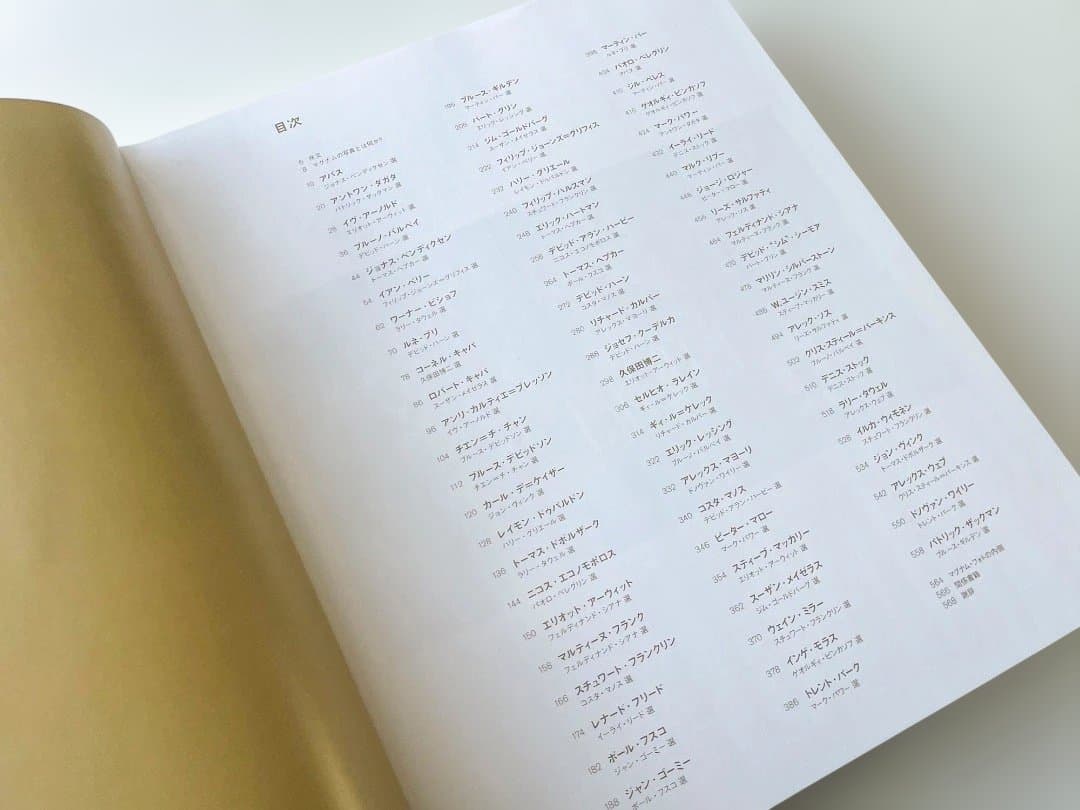 目次
6 序文
8 マグナムの写真とは何か?
10 アバス
ジョナス・ベンディクセン 選
20 アントワン・ダガタ
パトリック・ザックマン 選
28 イヴ・アーノルド
エリオット・アーウィット 選
36 ブルーノ・バルベイ
デビッド・ハーン 選
44 ジョナス・ベンディクセン
トーマス・ヘプカー 選
54 イアン・ベリー
フィリップ・ジョーンズ=グリフィス 選
62 ワーナー・ビショフ
ラリー・タウェル 選
70 ルネ・ブリ
デビッド・ハーン 選
78 コーネル・キャパ
久保田博二 選
86 ロバート・キャパ
スーザン・メイゼラス 選
96 アンリ・カルティエ=ブレッソン
イヴ・アーノルド 選
104 チエン=チ・チャン
ブルース・デビッドソン 選
112 ブルース・デビッドソン
チエン=チ・チャン 選
120 カール・デ=ケイザー
ジョン・ヴィンク 選
128 レイモン・ドゥパルドン
ハリー・グリエール 選
136 トーマス・ドボルザーク
ラリー・タウェル 選
144 ニコス・エコノモポロス
パオロ・ペレグリン 選
150 エリオット・アーウィット
フェルディナンド・シアナ 選
158 マルティーヌ・フランク
フェルディナンド・シアナ 選
166 スチュワート・フランクリン
コスタ・マノス 選
174 レナード・フリード
イーライ・リード 選
182 ポール・フスコ
ジャン・ゴーミー 選
188 ジャン・ゴーミー
ポール・フスコ 選
196 ブルース・ギルデン
マーティン・パー 選
206 バート・グリン
エリック・レッシング 選
214 ジム・ゴールドバーグ
スーザン・メイゼラス 選
222 フィリップ・ジョーンズ=グリフィス
イアン・ベリー 選
232 ハリー・グリエール
レイモン・ドゥパルドン 選
240 フィリップ・ハルスマン
スチュワード・フランクリン 選
248 エリック・ハートマン
トーマス・ヘプカー 選
256 デビッド・アラン・ハービー
ニコス・エコノモポロス 選
264 トーマス・ヘプカー
ポール・フスコ 選
272 デビッド・ハーン
コスタ・マノス 選
280 リチャード・カルバー
アレックス・マヨーリ 選
288 ジョセフ・クーデルカ
デビッド・ハーン 選
298 久保田博二
エリオット・アーウィット 選
306 セルヒオ・ラレイン
ギィ・ル=ケレック 選
314 ギィ・ル=ケレック
リチャード・カルバー 選
322 エリック・レッシング
ブルーノ・バルベイ 選
332 アレックス・マヨーリ
ドノヴァン・ワイリー 選
340 コスタ・マノス
デビッド・アラン・ハービー 選
346 ピーター・マロー
マーク・パワー 選
354 スティーブ・マッカリー
エリオット・アーウィット 選
362 スーザン・メイゼラス
ジム・ゴールドバーグ 選
370 ウェイン・ミラー
スチュワート・フランクリン 選
378 インゲ・モラス
ゲオルギィ・ピンカソフ 選
386 トレント・パーク
マーク・パワー 選
396 マーティン・パー
ルネ・ブリ 選
404 パオロ・ペレグリン
アバス 選
410 ジル・ペレス
マーティン・パー 選
416 ゲオルギィ・ピンカソフ
ゲオルギィ・ピンカソフ 選
424 マーク・パワー
アントワン・ダガタ 選
432 イーライ・リード
デニス・ストック 選
440 マルク・リブー
マーティン・パー 選
448 ジョージ・ロジャー
ピーター・マロー 選
456 リーズ・サルファティ
アレック・ソス 選
464 フェルディナンド・シアナ
マルティーヌ・フランク 選
470 デビッド・“シム”・シーモア
バート・グリン 選
478 マリリン・シルバーストーン
マルティーヌ・フランク 選
486 W.ユージン・スミス
スティーブ・マッカリー 選
494 アレック・ソス
リーズ・サルファティ 選
502 クリス・スティール=パーキンス
ブルーノ・バルベイ 選
510 デニス・ストック
デニス・ストック 選
518 ラリー・タウェル
アレックス・ウェブ 選
528 イルカ・ウィモネン
スチュワート・フランクリン 選
534 ジョン・ヴィンク
トーマス・ドボルザーク 選
542 アレックス・ウェブ
クリス・スティール=パーキンス 選
550 ドノヴァン・ワイリー
トレント・パーク 選
558 パトリック・ザックマン
ブルース・ギルデン 選
564 マグナム・フォトの内側
566 関係書籍
568 謝辞